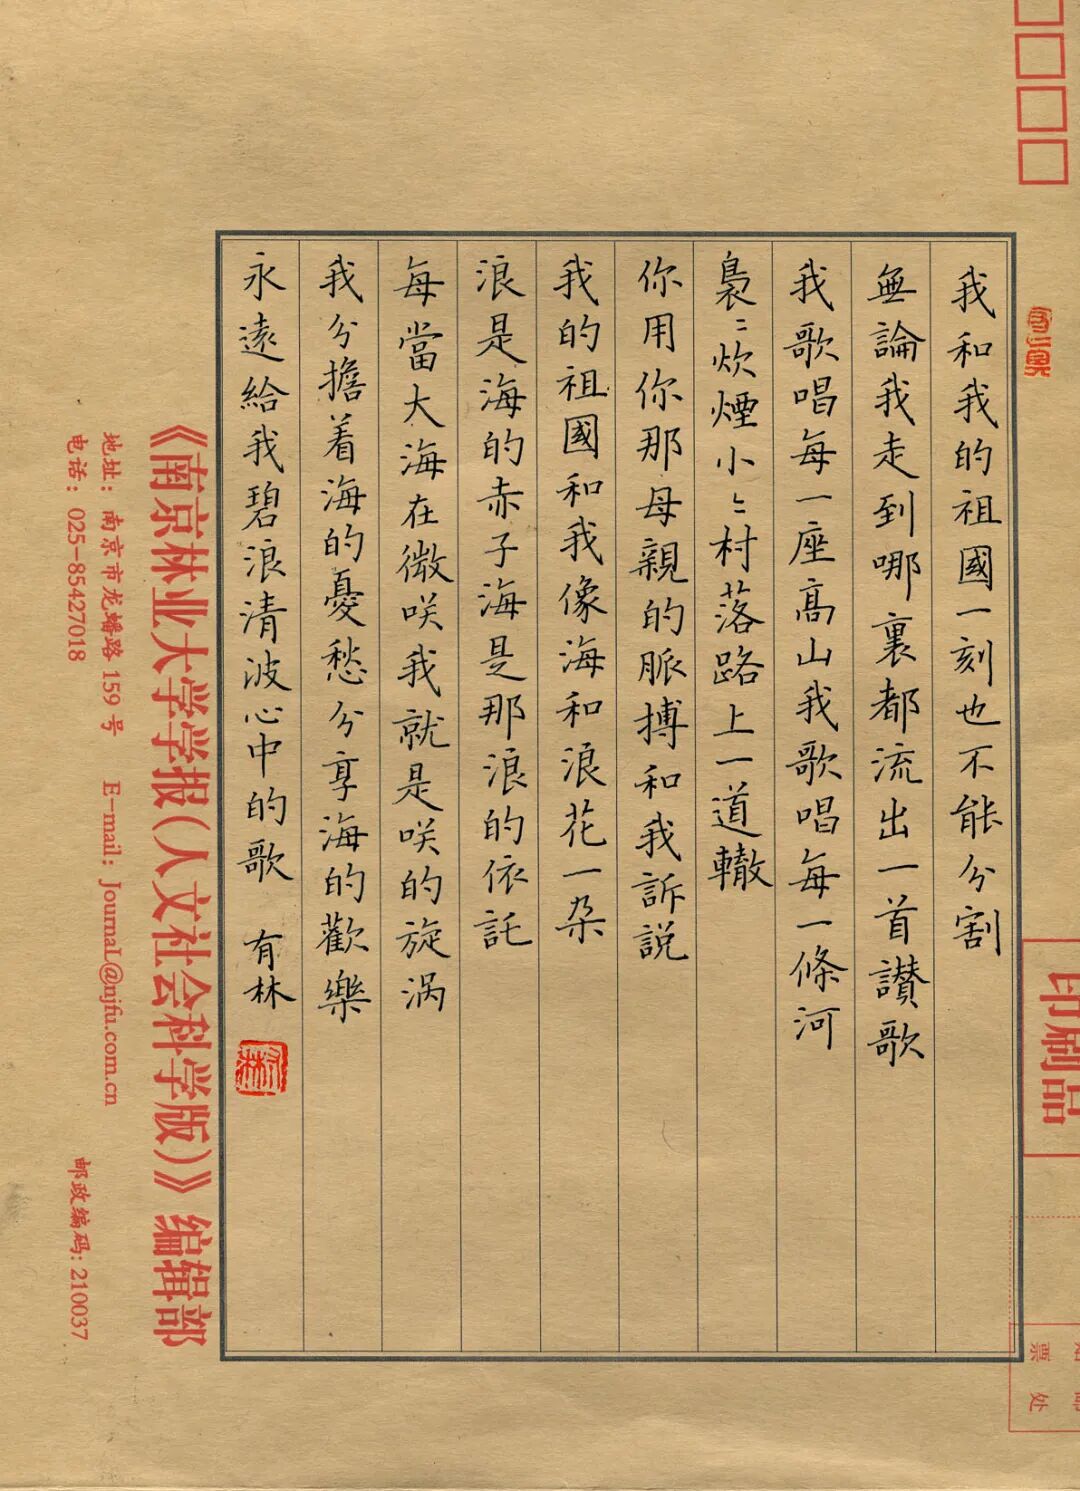 我和我的祖國一刻也不能分割
無論我走到哪裏都流出一首讃歌
我歌唱每一座高山我歌唱每一條河
裊〻炊煙小〻村落路上一道轍
你用你那母親的脈搏和我訴説
我的祖國和我像海和浪花一朶
浪是海的赤子海是那浪的依託
每當大海在微咲我就是咲的旋涡
我分擔着海的憂愁分享海的歡樂
永遠給我碧浪清波心中的歌 有林
有林
印刷品
票处
《南京林业大学学报(人文社会科学版)》编辑部
地址: 南京市龙蟠路 159 号 E-mail: JournaL@njfu.com.cn
电话: 025-85427018 邮政编码: 210037